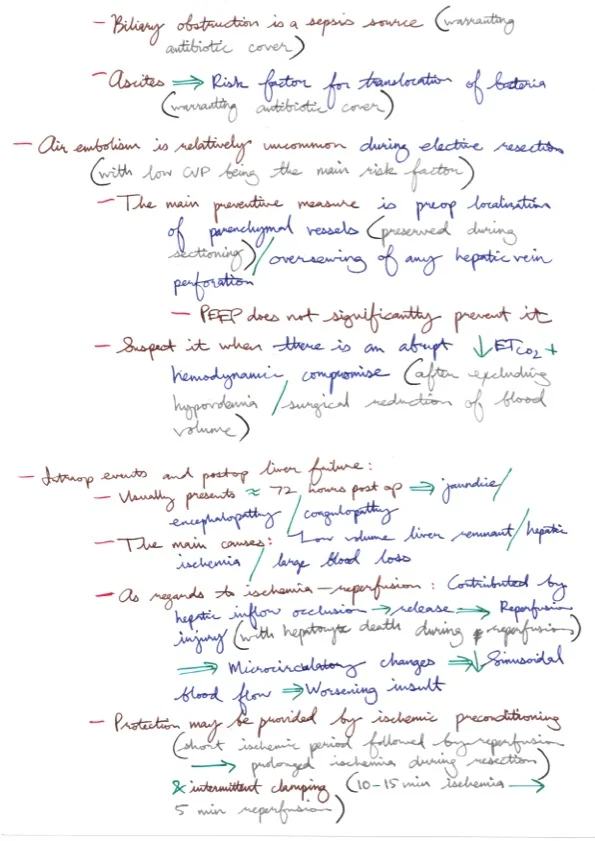 – Biliary obstruction is a sepsis source (warranting
antibiotic cover)
– Ascites ⇒ Risk factor for translocation of bateria
(warranting antibiotic cover)
– Air embolism is relatively uncommon during elective resection
(with low CVP being the main risk factor)
– The main preventive measure is preop localization
of parenchymal vessels (preserved during
sectioning) / oversewing of any hepatic vein
perforation
– PEEP does not significantly prevent it
– Suspect it when there is an abrupt ↓ETCO2 +
hemodynamic compromise (after excluding
hypovolemia / surgical reduction of blood
volume)
– Intraop events and postop liver failure:
– Usually presents ≈ 72 hours post op ⇒ jaundice /
encephalopathy / coagulopathy
– The main causes: Low volume liver remnant / hepatic
ischemia / large blood loss
– As regards to ischemia – reperfusion : Contributed by
hepatic inflow occlusion → release ⇒ Reperfusion
injury (with hepatocyte death during reperfusion)
⇒ Microcirculatory changes ⇒ ↓Sinusoidal
blood flow ⇒ Worsening insult
– Protection may be provided by ischemic preconditioning
(short ischemic period followed by reperfusion
→ prolonged ischemia during resection)
& intermittent clamping (10–15 min ischemia →
5 min reperfusion)